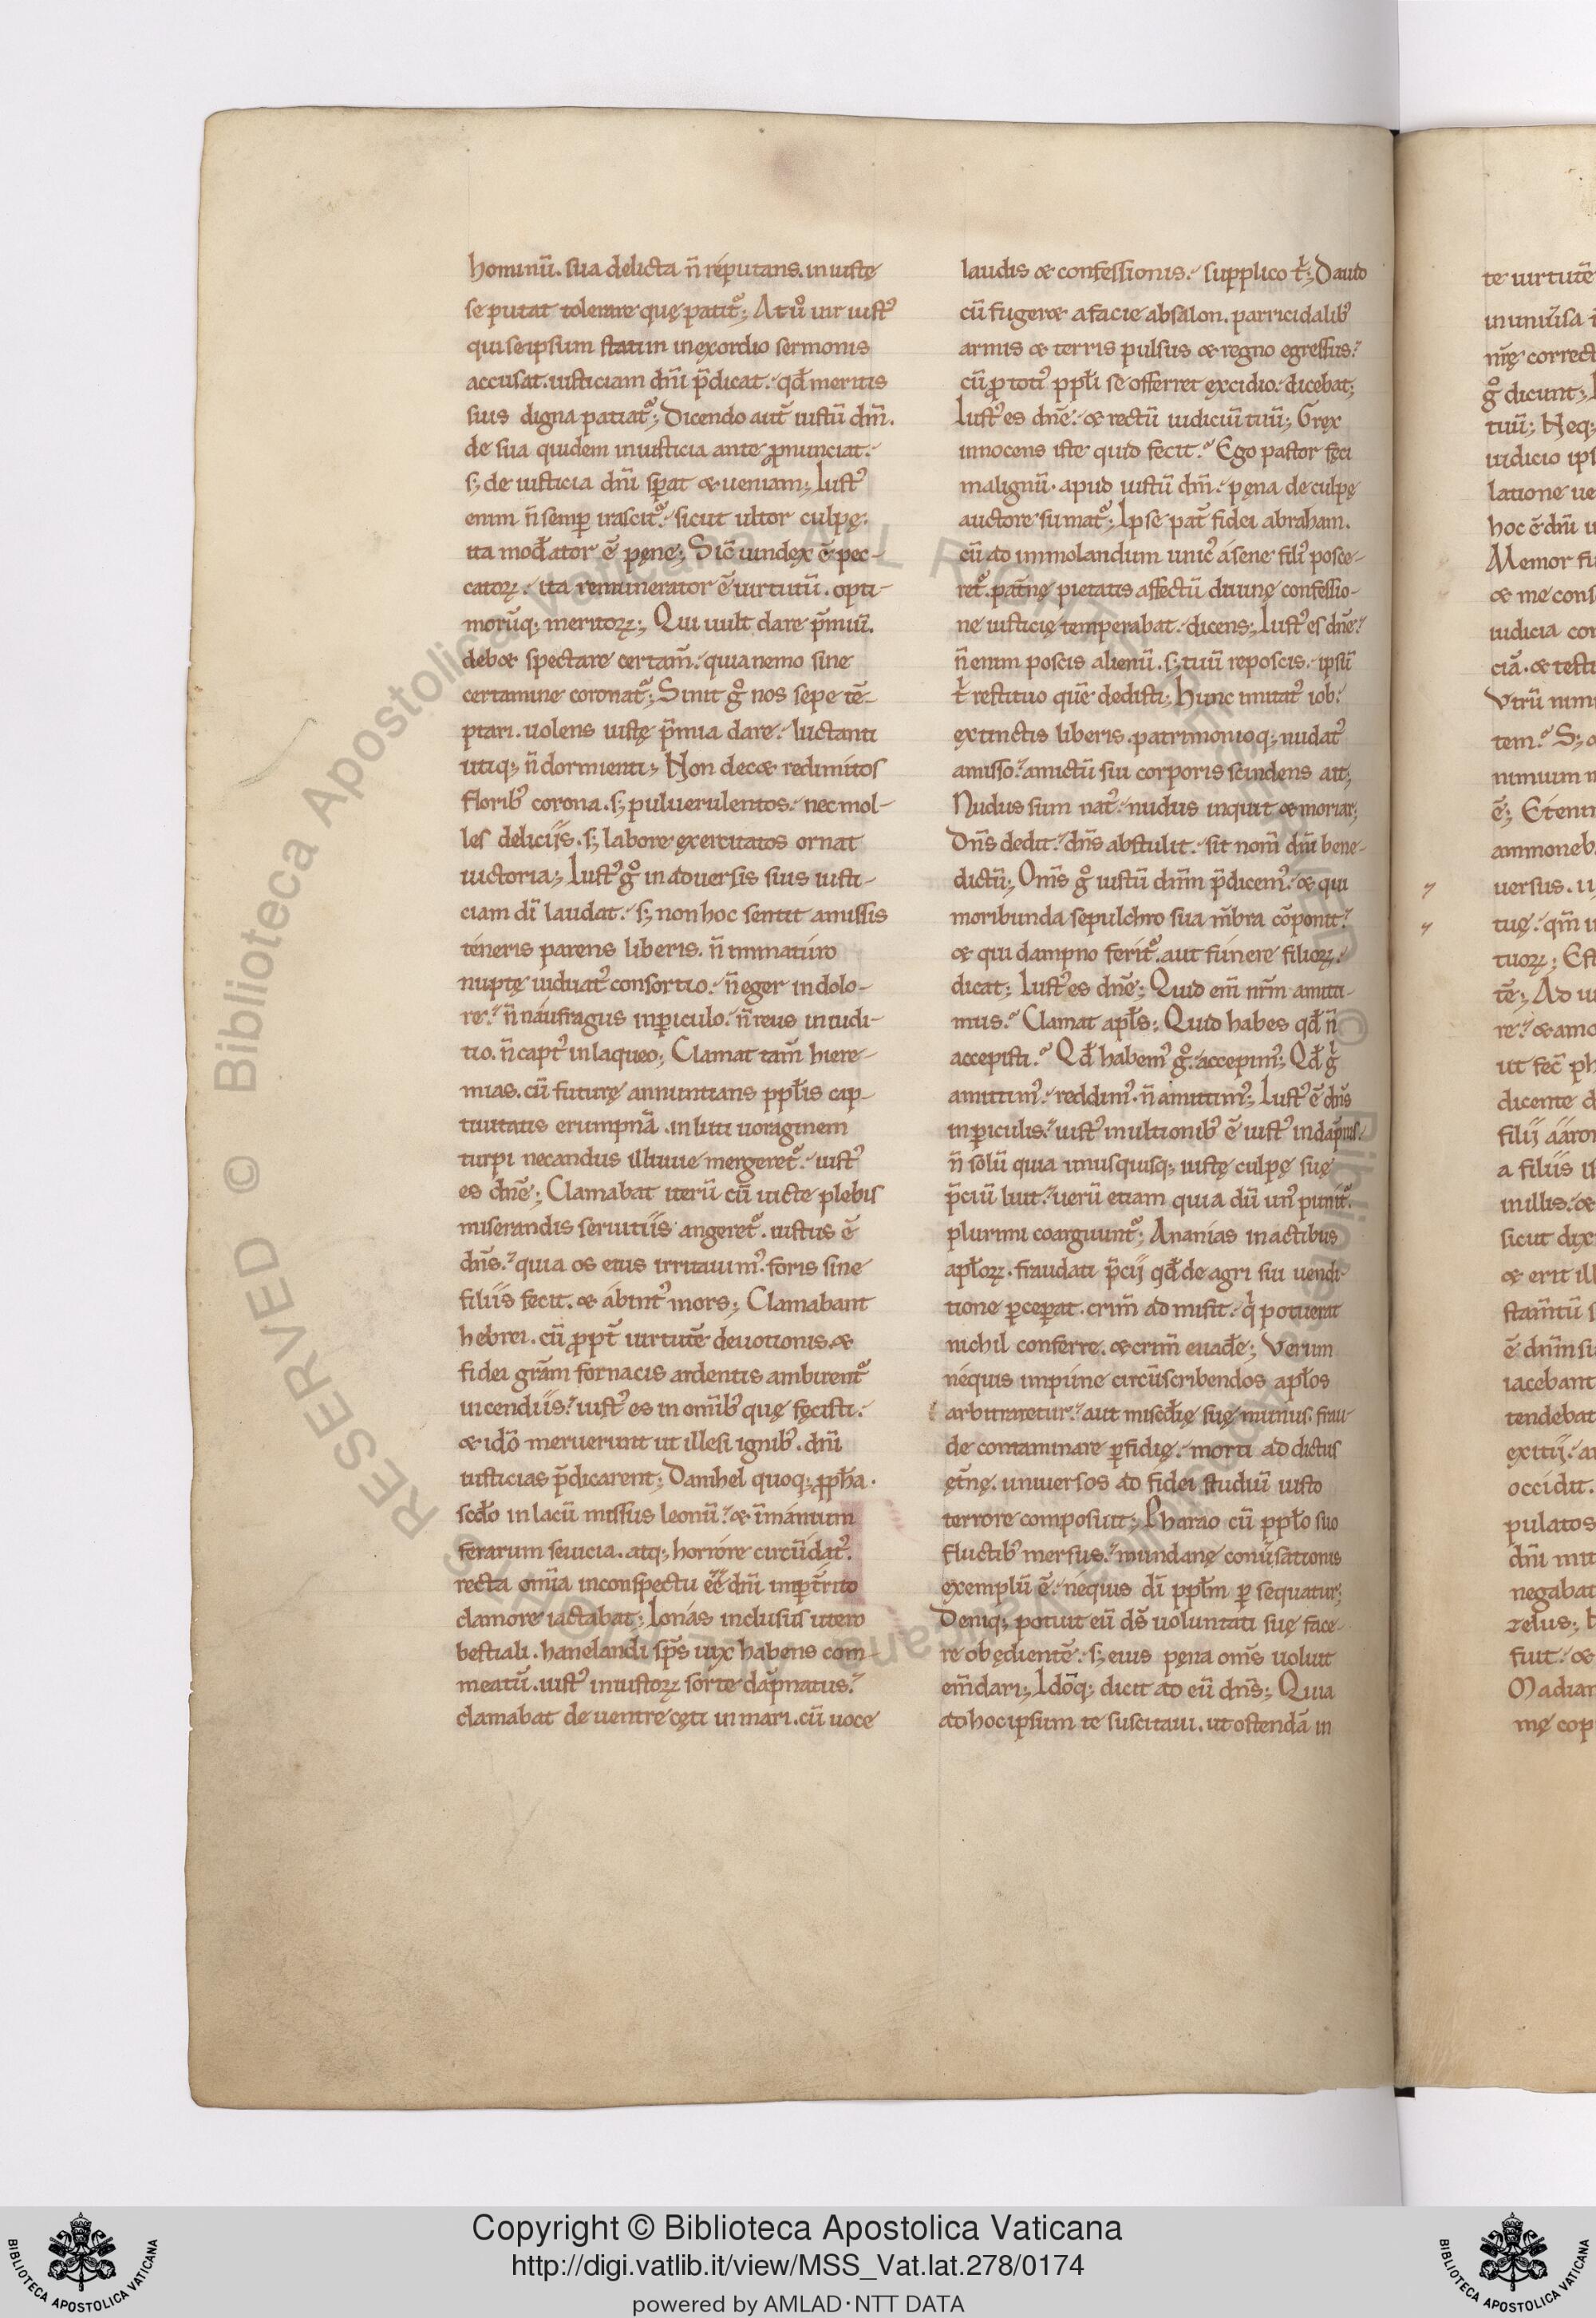 hominū. sua delicta n̄ reputans. iniustę
se putat tolerare quę patit᷑; At ů uir iust᾽
qui se ipsum statim in exordio sermonis
accusat. iusticiam dn̄i p̄dicat. qđ meritis
suis digna patiat᷑; Dicendo aut̄ iustū dn̄m.
de sua quidem iniusticia ante ꝓnunciat.
s; de iusticia dn̄i sꝑat & ueniam; Iust᾽
enim n̄ semꝑ irascit᷑. sicut ultor culpę.
ita mod̄ator ē pęnę; Sic̄ uindex ē pec-
catoꝝ. ita remunerator ē uirtutū. opti-
morūq; meritoꝝ; Qui uult dare p̄miū.
deb& spectare certam̄. quia nemo sine
certamine coronat᷑; Sinit g̊ nos sepe tē-
ptari. uolens iustę p̄mia dare. luctanti
utiq; n̄ dormienti; Non dec& redimitos
florib᾽ corona. s; puluerulentos. nec mol-
les deliciis. s; labore exercitatos ornat
uictoria; Iust᾽ g̊ in aduersis suis iusti-
ciam dī laudat. s; non hoc sentit amissis
teneris parens liberis. n̄ immaturo
nuptę uiduat᾽ consortio. n̄ eger in dolo-
re. n̄ naufragus in ꝑiculo. n̄ reus in iudi-
tio. n̄ capt᾽ in laqueo; Clamat tam̄ hiere-
mias. cū futurę annuntians ppl̄is cap-
tiuitatis erumpnā. in luti uoraginem
turpi necandus illuuie mergeret᷑. iust᾽
es dn̄e; Clamabat iterū cū uicte plebis
miserandis seruitiis angeret᷑. iustus ē
dn̄s. quia os eius irritauim᾽. foris sine
filiis fecit. & ab int᾽ mors; Clamabant
hebrei. cū ꝓpt̄ uirtutē deuotionis. &
fidei gr̄am fornacis ardentis ambirent᷑
incendiis. iust᾽ es in om̄ib᾽ quę fęcisti.
& idō meruerunt ut illesi ignib᾽. dn̄i
iusticias p̄dicarent; Danihel quoq; ꝓpħa.
scđo in lacū missus leonū. & īmanium
ferarum seuicia. atq; horrore circūdat᾽.
recta om̄ia in conspectu eē dn̄i imꝑt̄rito
clamore iactabat; Ionas inclusus utero
bestiali. hanelandi sp̄s uix habens com-
meatū. iust᾽ iniustoꝝ sorte dāpnatus.
clamabat de uentre cęti in mari. cū uoce
laudis & confessionis. supplico t̄; Dauid
cū fuger& a facie absalon. parricidalib᾽
armis & terris pulsus & regno egressus.
cū ꝓ toti᾽ ppl̄i se offerret excidio. dicebat;
Iust᾽ es dn̄e. & rectū iudiciū tuū; Grex
innocens iste quid fecit. Ego pastor fęci
malignū. apud iustū dn̄m. pęna de culpę
auctore sumat᷑; Ipse pat̄ fidei abraham.
cū ad immolandum unic᾽ a sene fili᾽ posce-
ret᷑. pat̄nę pietatis affectū diuinę confessio-
ne iusticię temperabat. dicens; Iust᾽ es dn̄e.
n̄ enim poscis alienū. s; tuū reposcis. ipsū
t̄ restituo quē dedisti; Hunc imitat᾽ iob.
extinctis liberis. patrimonioq; nudat᾽
amisso. amictū sui corporis scindens ait;
Nudus sum nat᾽. nudus inquit & moriar;
Dn̄s dedit. dn̄s abstulit. sit nom̄ dn̄i bene-
dictū; Om̄s g̊ iustū dn̄m p̄dicem᾽. & qui
moribunda sepulchro sua m̄bra cōponit.
& qui dampno ferit᷑. aut funere filioꝝ.
dicat; Iust᾽ es dn̄e; Quid em̄ nr̄m amitti-
mus. Clamat apl̄s; Quid habes qđ n̄
accepisti. Qđ habem᾽ g̊. accepim᾽; Qđ g̊
amittim᾽. reddim᾽. n̄ amittim᾽; Iust᾽ ē dn̄s
in ꝑiculis. iust᾽ in ultionib᾽ ē iust᾽ in dāpnis.
n̄ solū quia unusquisq; iustę culpę suę
p̄ciū luit. uerū etiam quia dū un᾽ punit᷑.
plurimi coarguunt᷑; Ananias in actibus
apl̄oꝝ. fraudati p̄cii qđ de agri sui uendi-
tione ꝑceꝑat. crim̄ admisit. q̄ potuerat
nichil conferre. & crim̄ euad̄e; Verum
nequis impune circūscribendos apl̄os
arbitraretur. aut misc̄dię suę munus. frau-
de contaminare ꝑfidię. morti addictus
ęt̄nę. uniuersos ad fidei studiū iusto
terrore composuit; Pharao cū ppl̄o suo
fluctib᾽ mersus. mundanę conūsationis
exemplū ē. nequis dī ppl̄m ꝑsequatur;
Deniq; potuit eū ds̄ uoluntati suę face-
re obędientē. s; eius pęna om̄s uoluit
em̄dari; Idōq; dicit ad eū dn̄s; Quia
ad hoc ipsum te suscitaui. ut ostendā in
te uirtutē
nr̄ę correct
g̊ dicunt;
tuū; Neq;
iudicio ips
latione ue
hoc ē dn̄i u
Memor fu
& me cons
iudicia con
ciā. & testi
Vtrū nimi
tem. S; a
nimium n
ē; Etenim
ammoneb
uersus. u
tuę. qm̄ u
tuoꝝ; Est
tē; Ad ui
re. & amo
ut fec̄ ph
dicente d
filii aaron
a filiis is
in illis. &
sicut dix
& erit ill
stam̄tū s
ē dn̄m su
iacebant
tendebat
exitii. a
occidit.
pulatos
dn̄i mit
negabat
zelus;
fuit. &
Madian
mę cop
RESERVED © Biblioteca Apostolica Vaticana
Copyright © Biblioteca Apostolica Vaticana
http://digi.vatlib.it/view/MSS_Vat.lat.278/0174
powered by AMLAD·NTT DATA
BIBLIOTECA APOSTOLICA VATICANA
BIBLIOTECA APOSTOLICA VATICANA